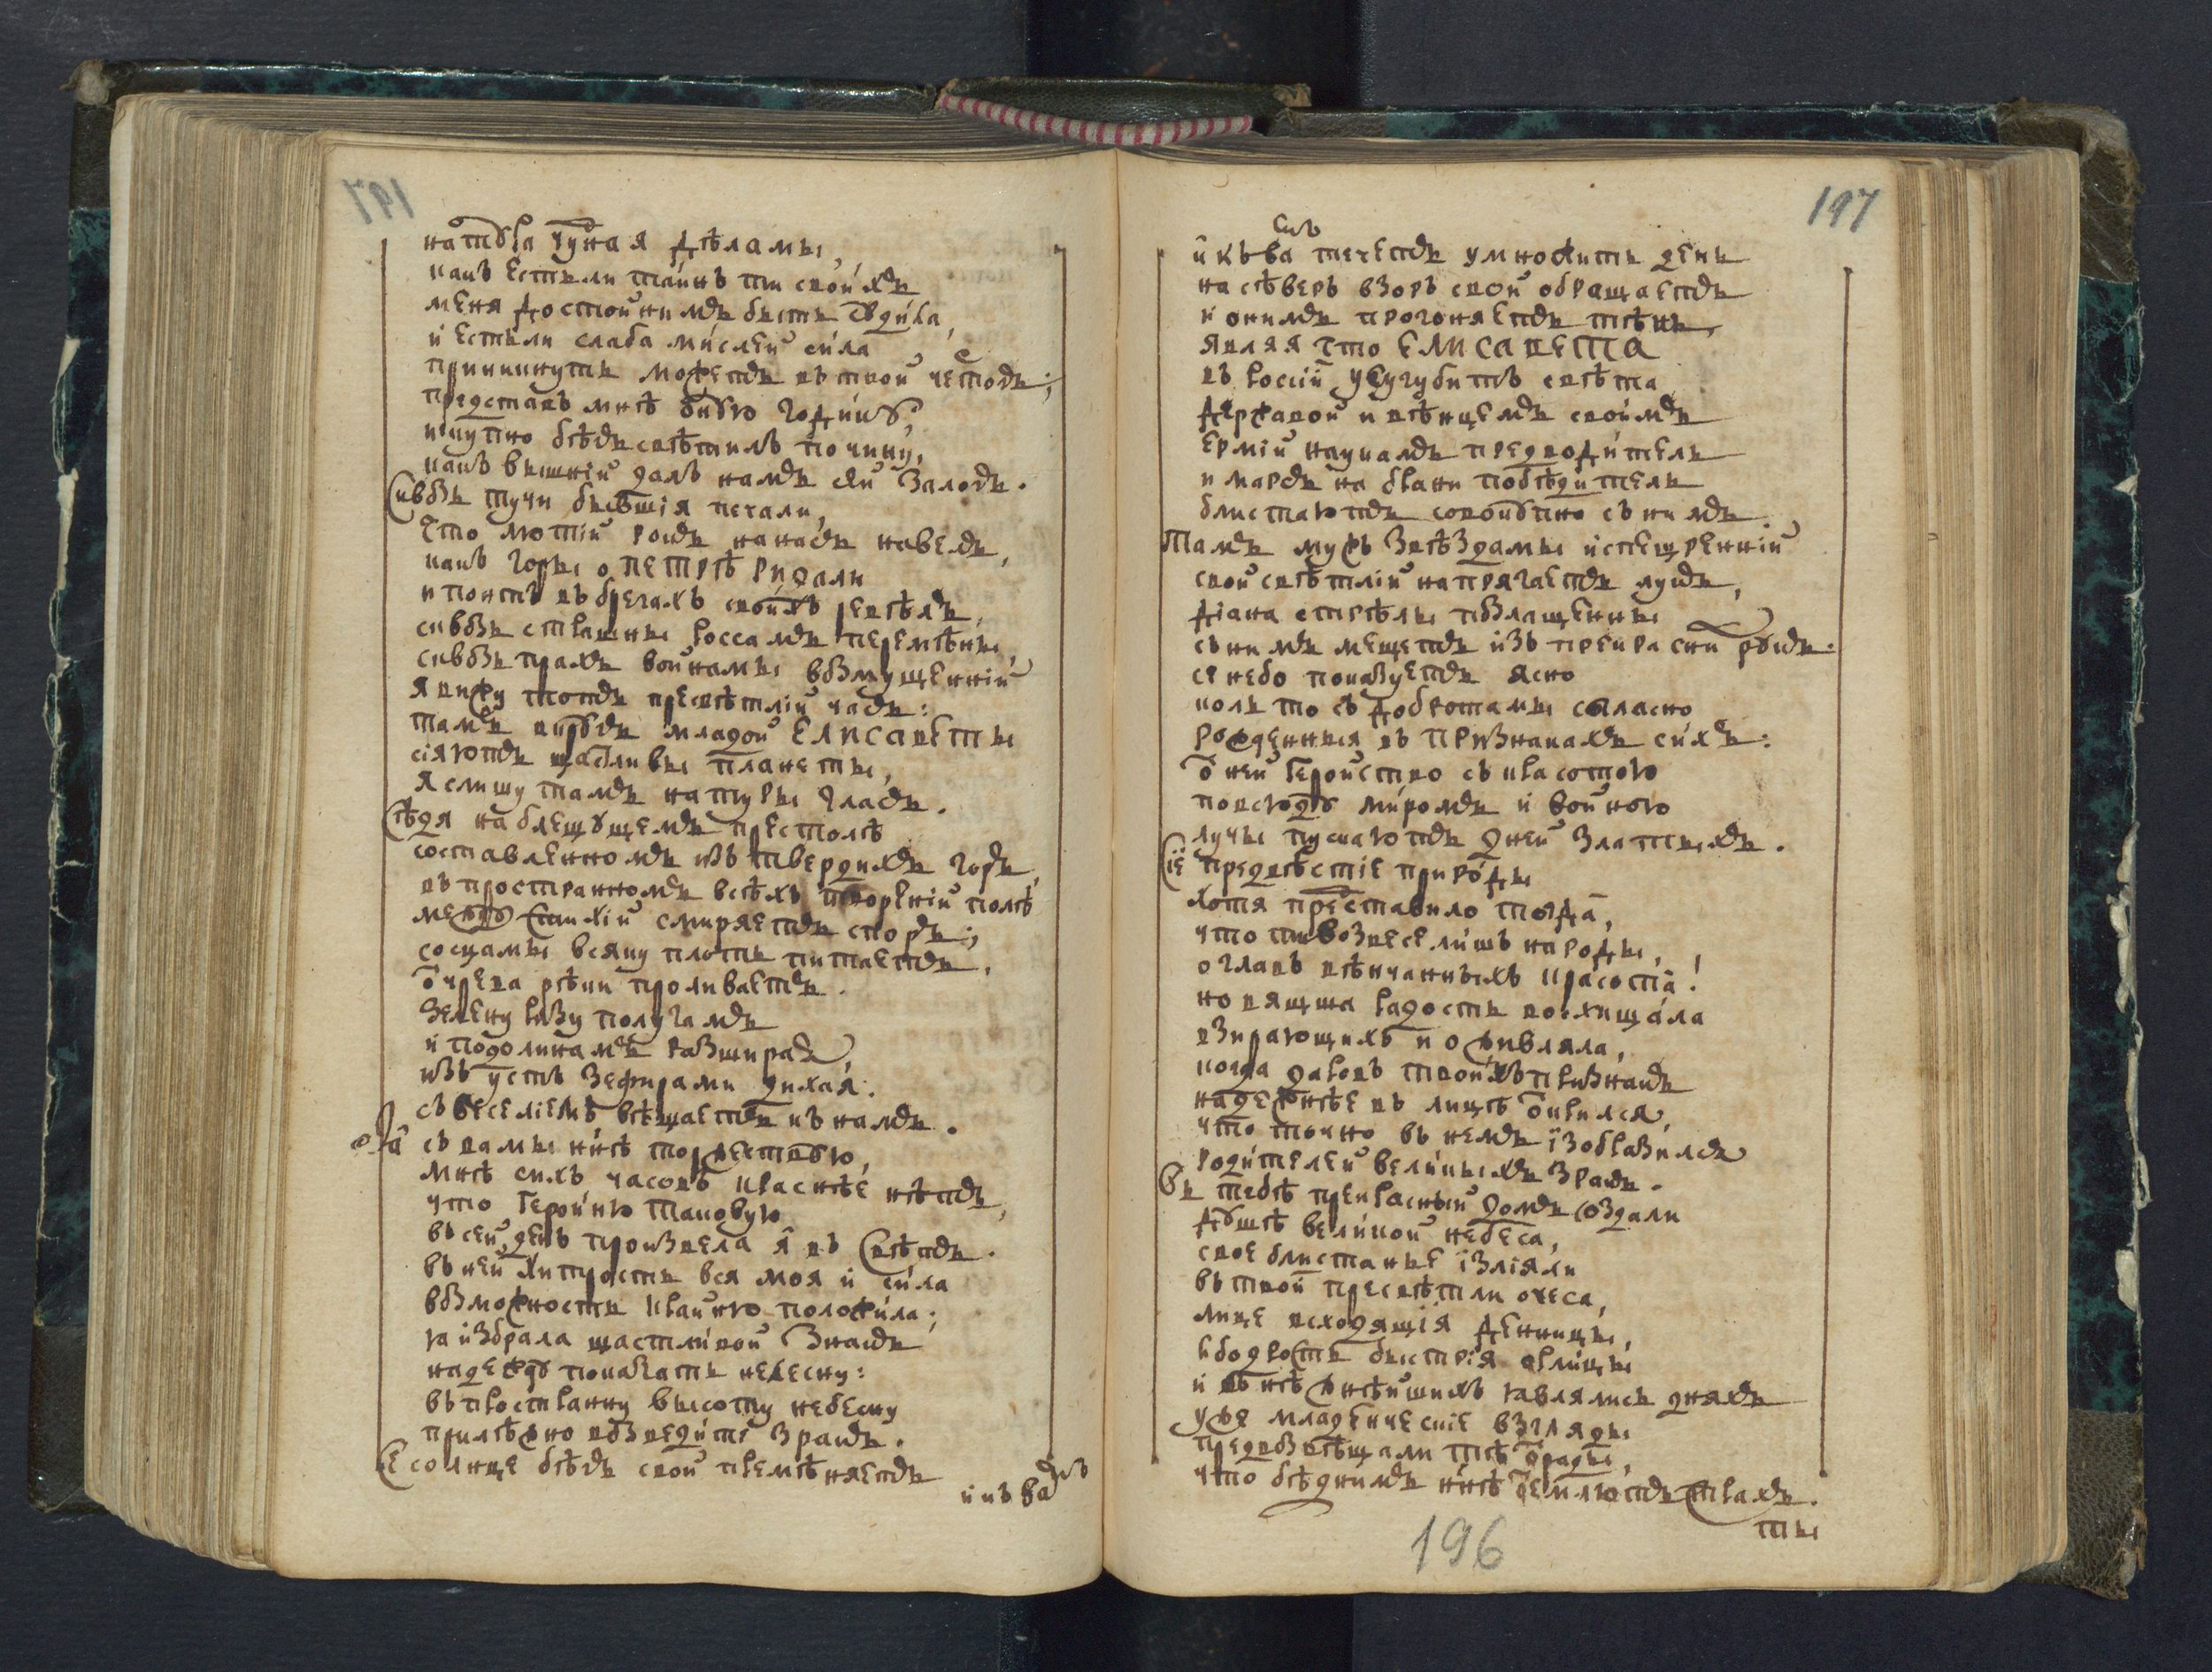 197
натꙋра чудная дѣламы,
какъ естьли тайнъ ти своихъ
меня достойнимъ быть сꙋдила,
и естьли слаба мислей сила
приникнуть можетъ въ твой чертогъ;
представъ мнѣ ѡнꙋю годинꙋ,
и купно бѣгъ свѣтилъ по чину,
какъ вышній далъ намъ сей залогъ.
Сквозь тучи бывшія печали,
что лютій рокъ на насъ навелъ,
какъ горы о ПЕТРѢ ридали
и понтъ въ брегахъ своихъ ревѣлъ,
сквозь страшны россамъ перемѣны,
сквозь прахъ войнамы возмущенній
я вижу тотъ пресвѣтлій часъ:
тамъ вкрꙋгъ младой ЕЛИСАВЕТЫ
сіяютъ щасливы планеты,
я слишу тамъ натуры гласъ.
Сѣдя на блещꙋщемъ престолѣ
составленномъ изъ твердихъ горъ,
въ пространномъ всѣхъ твореній полѣ
междꙋ стихій смиряетъ споръ;
сосцамы всяку плоть питаетъ,
ѿ чрева рѣки проливаетъ.
зелену ризу по лугамъ
и по долинамъ разширая,
изъ устъ зефирами дихая.
съ веселіемъ вѣщаетъ къ намъ.
я съ вамы нинѣ торжествꙋю,
мнѣ сихъ часовъ краснѣе нѣтъ,
что Героиню таковую
въ сей день произвела я въ свѣтъ.
въ ней хитрость вся моя и сила
возможность крайнюю положила;
я избрала щастливой знакъ
надеждꙋ показать нелесну:
въ пространну высоту небесну
прилѣжно возведите зракъ.
Се солнце бѣгъ свой премѣняетъ
и къ вамъ
197
и къ вамъ течетъ умножить день
на сѣверъ взоръ свой обращаетъ
и онимъ прогоняетъ тѣнь,
являя что ЕЛИСАВЕТА
въ россіи усугубитъ свѣта
державой и вѣнцемъ своимъ
Ермій наукамъ предводитель
и марсъ на брани побѣдитель
блистаютъ совокꙋпно съ нимъ.
Тамъ мужъ звѣздамы испещренній
свой свѣтлій напрягаетъ лукъ,
Діана стрѣлы позлащенны
съ нимъ мещетъ изъ прекрасни рꙋкъ.
се небо показуетъ ясно
коль то съ добротамы согласно
рожденныя въ признакахъ сихъ:
ѿ ней Геройство съ красотою
повсюдꙋ миромъ и войною
лучы пускаютъ дней златыхъ.
Сіе предвѣстіе природы
Хотя представило тогда,
что ти возвеселишъ народы,
о главъ вѣнчанныхъ красота!
но вящша радость восхищала
взирающихъ и оживляла,
когда даровъ твоихъ признакъ
надежнѣе въ лицѣ ѿкрился,
что точно въ немъ ізобразился
родителей великыхъ зракъ.
Въ тебѣ прекрасный домъ создали
дꙋшѣ великой небеса,
свое блистанье ізліяли
въ твои пресвѣтли очеса,
лице всходящія денницы,
и бодрость быстрія орлицы
и въ нѣжнѣйшихъ являлись дняхъ
уже младенческіе взгляды
предвозвѣщали тѣ ѿрады,
что бѣднимъ нинѣ ѿемлютъ страхъ.
ты
196